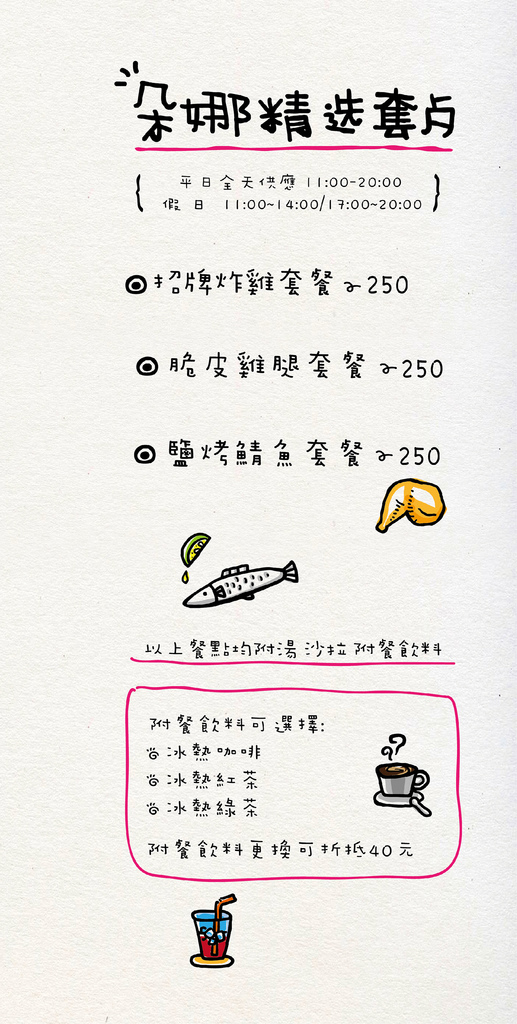 朵娜精选套点
平日全天供應 11:00-20:00
假日 11:00~14:00/17:00~20:00
招牌炸雞套餐~250
脆皮雞腿套餐~250
鹽烤鯖魚套餐~250
以上餐點均附湯沙拉附餐飲料
附餐飲料可選擇:
冰熱咖啡
冰熱紅茶
冰熱綠茶
附餐飲料更換可折抵40元